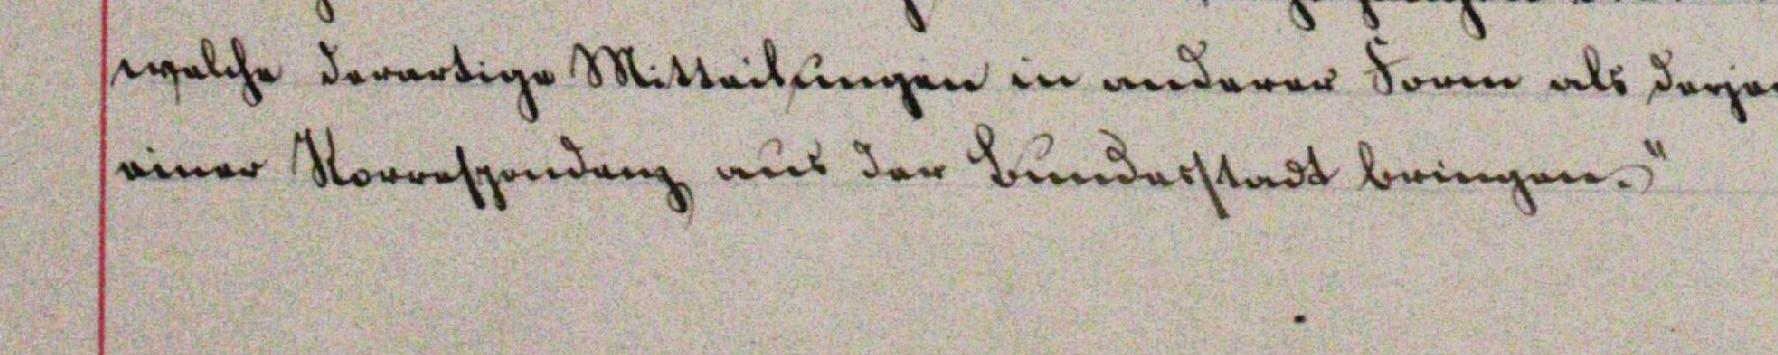 welche derartige Mitteilungen in anderer Form als derje
einer Korrespondenz aus der Bundesstadt bringen."